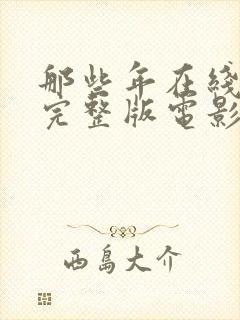 那些年在綫
完整版電影
西島大介